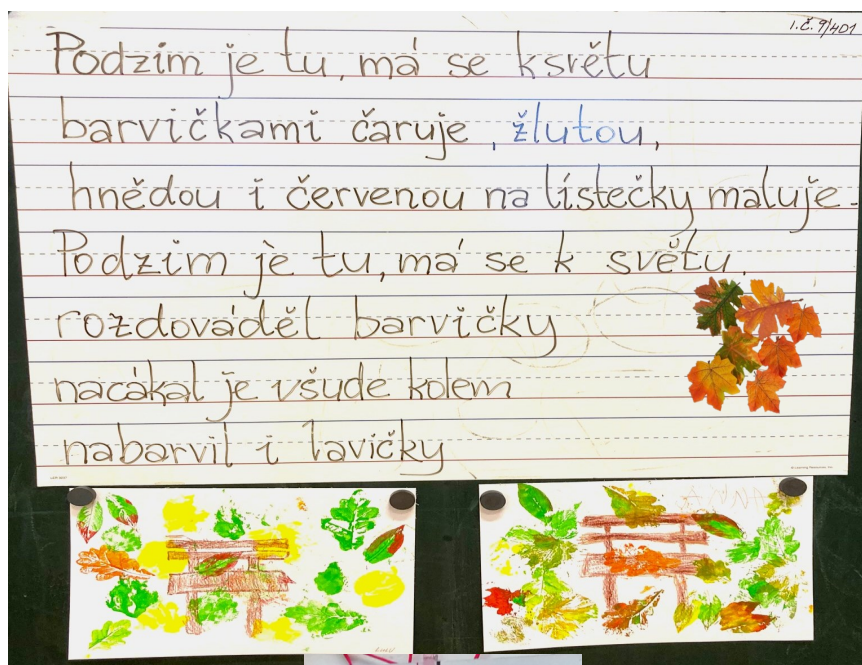 i.č. 9/401
Podzim je tu, má se k světu
barvičkami čaruje, žlutou,
hnědou i červenou na lístečky maluje.
Podzim je tu, má se k světu.
rozdováděl barvičky
nacákal je všude kolem
nabarvil i lavičky
© Learning Resources, Inc.